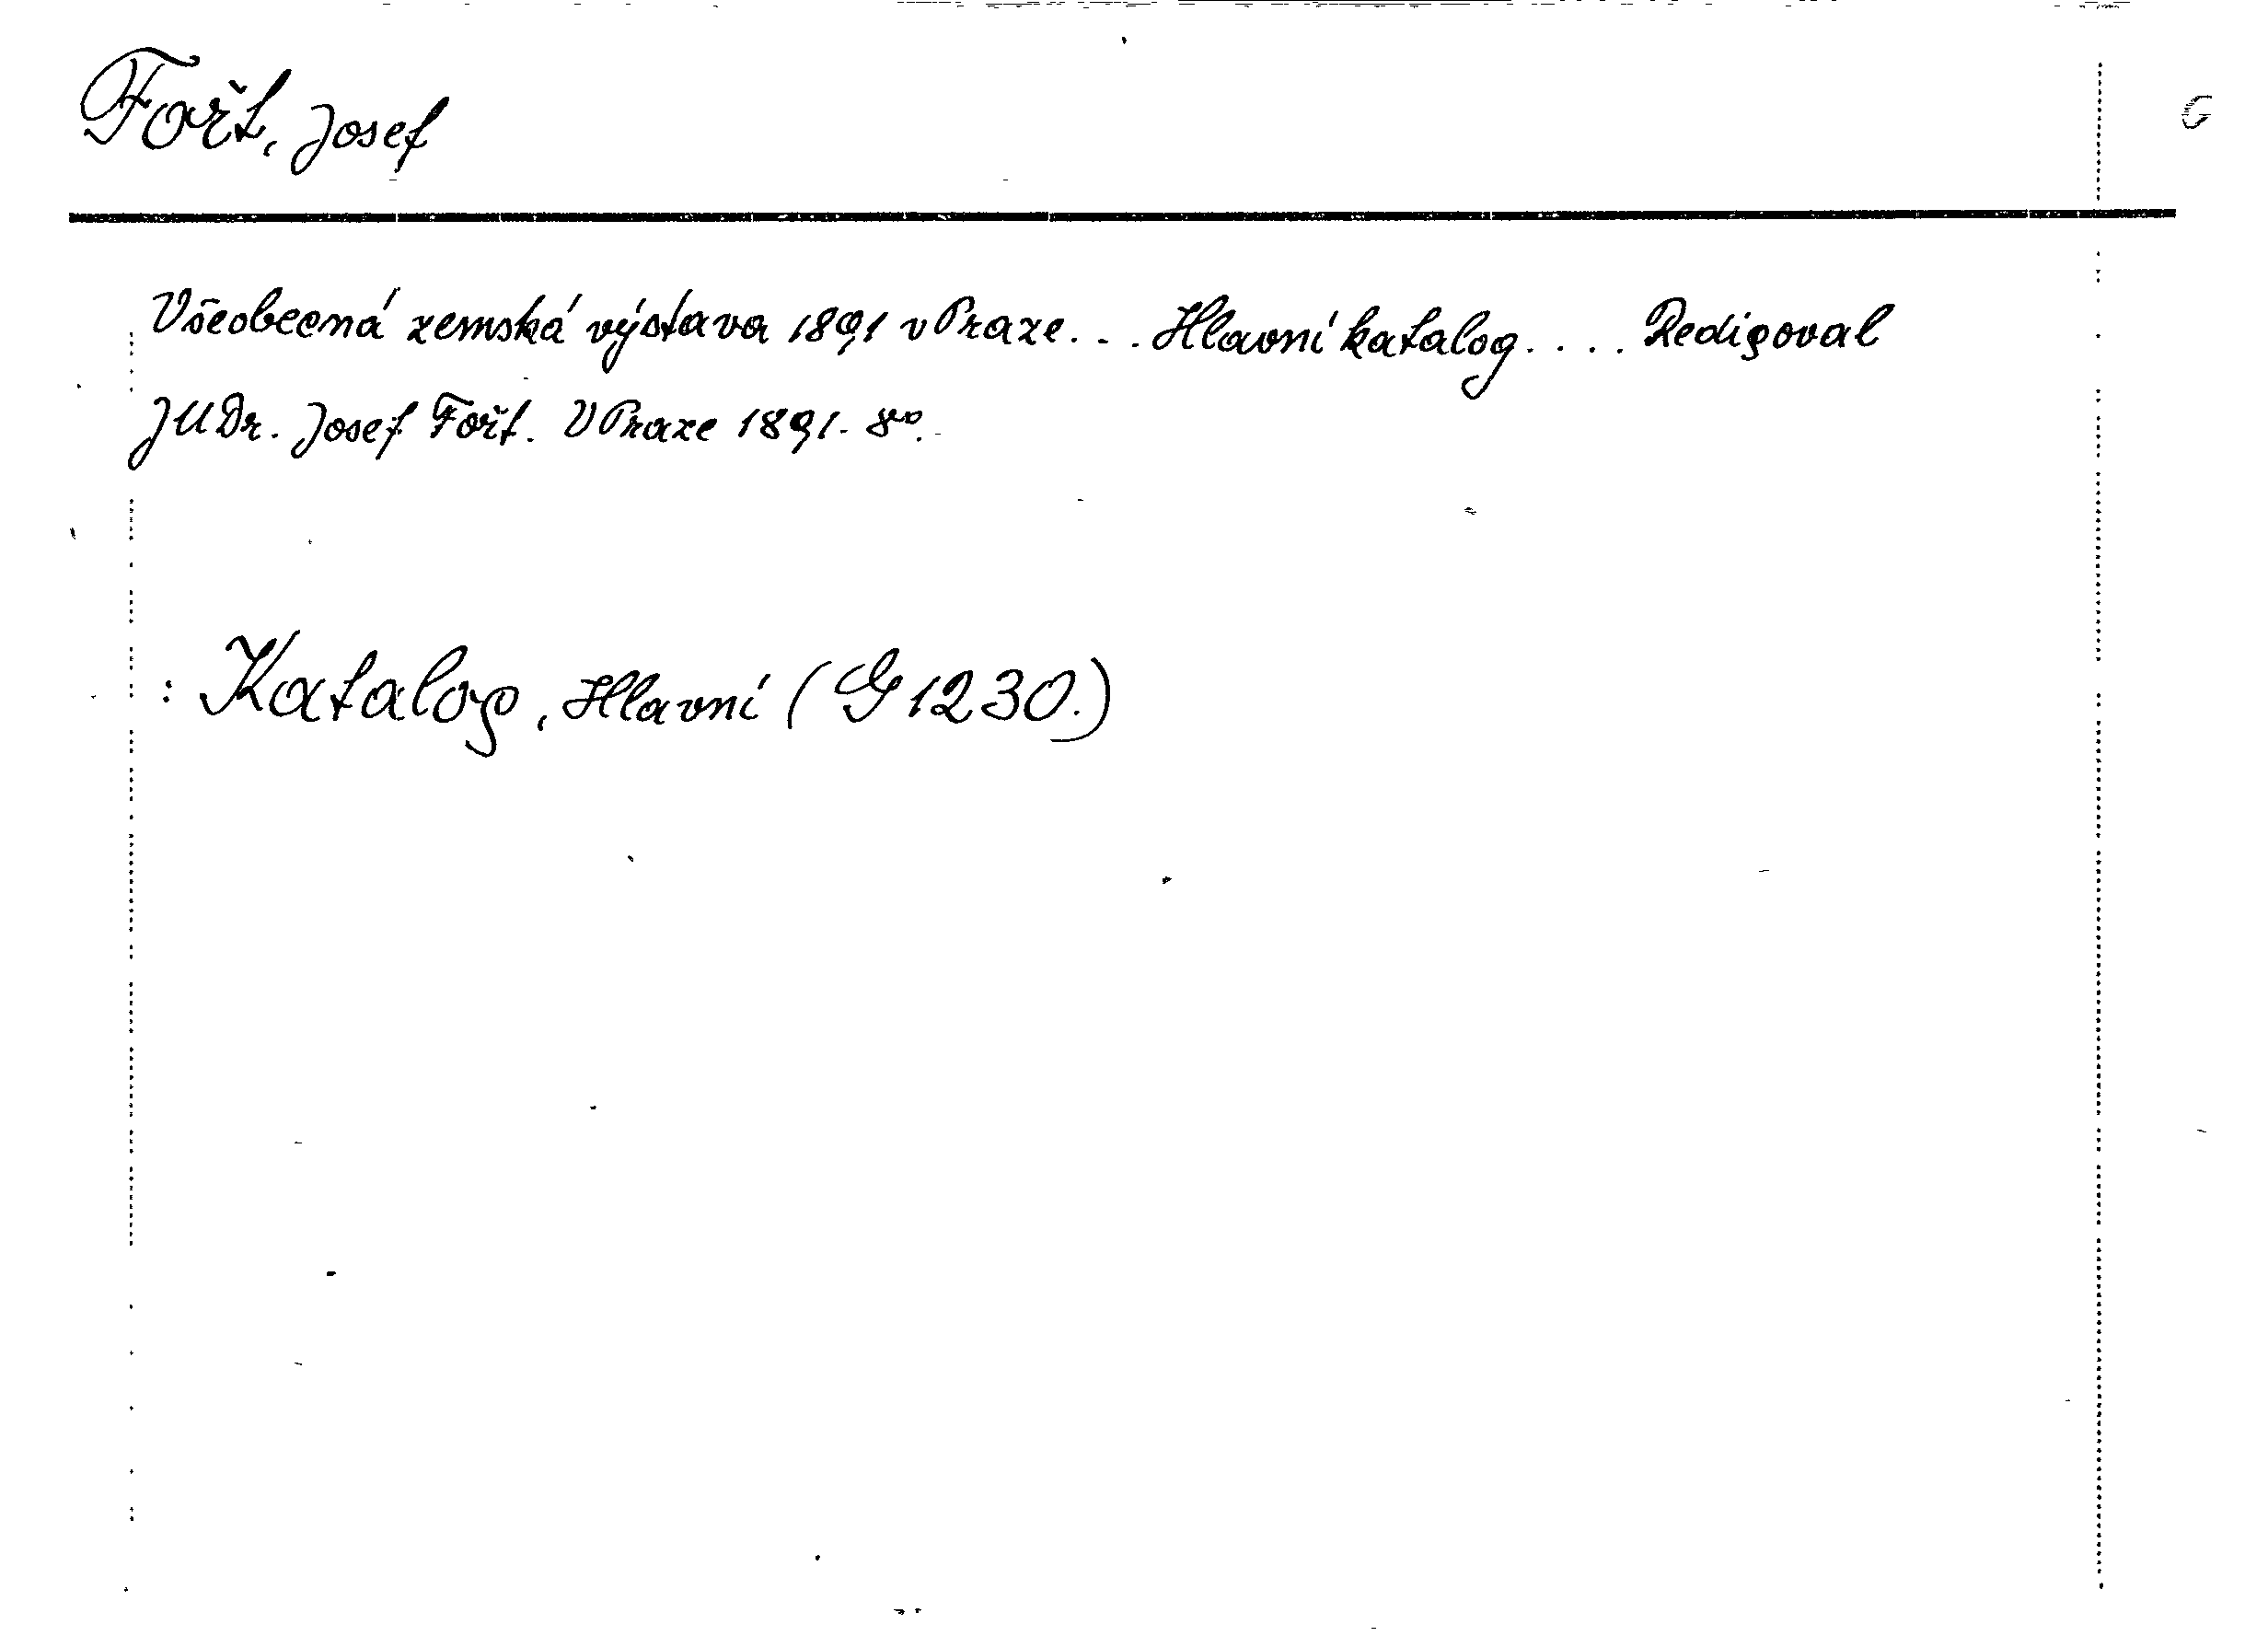 Fořt, Josef
G
Všeobecná zemská výstava 1891 v Praze... Hlavní katalog.... Redigoval
JUDr. Josef Fořt. V Praze 1891. 8o.
: Katalog, Hlavní (G 1230.)